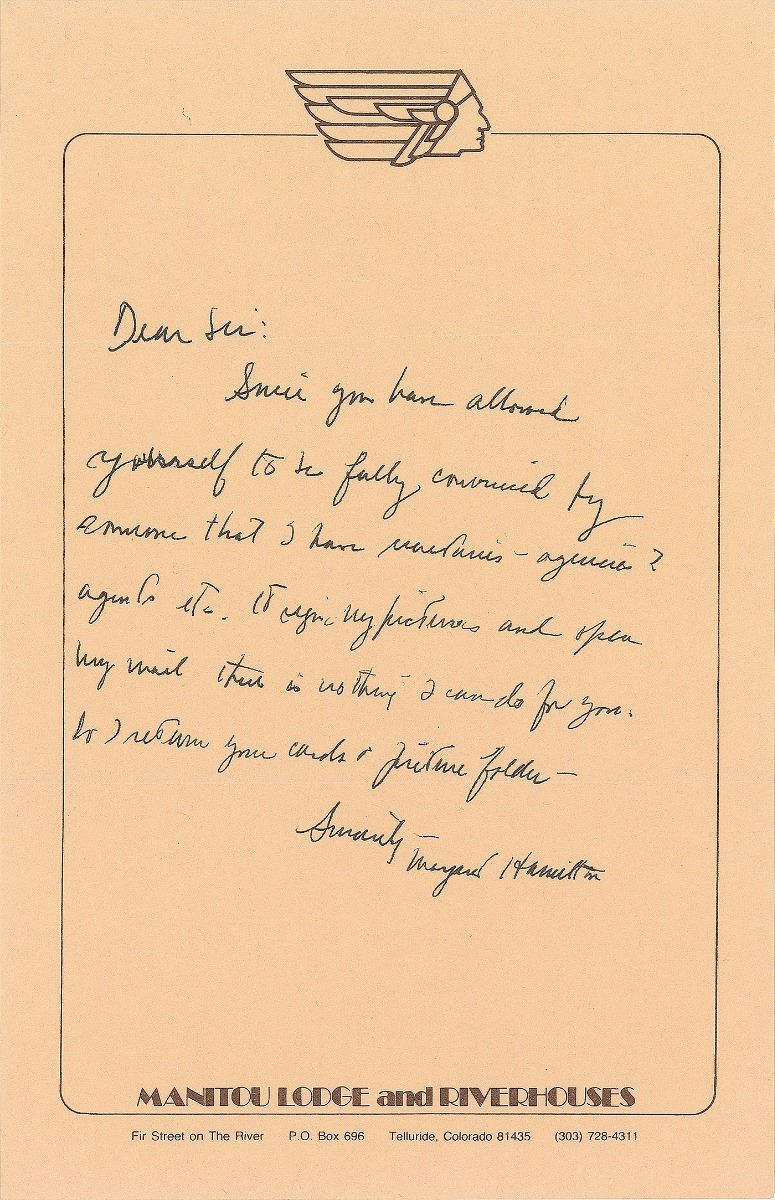 Dear Sir:
Since you have allowed
yourself to be fully convinced by
someone that I have secretaries - agencies?
agents etc. to sign my pictures and open
my mail there is nothing I can do for you.
So I return your cards & picture folder —
Sincerely —
Margaret Hamilton
MANITOU LODGE and RIVERHOUSES
Fir Street on The River P.O. Box 696 Telluride, Colorado 81435 (303) 728-4311